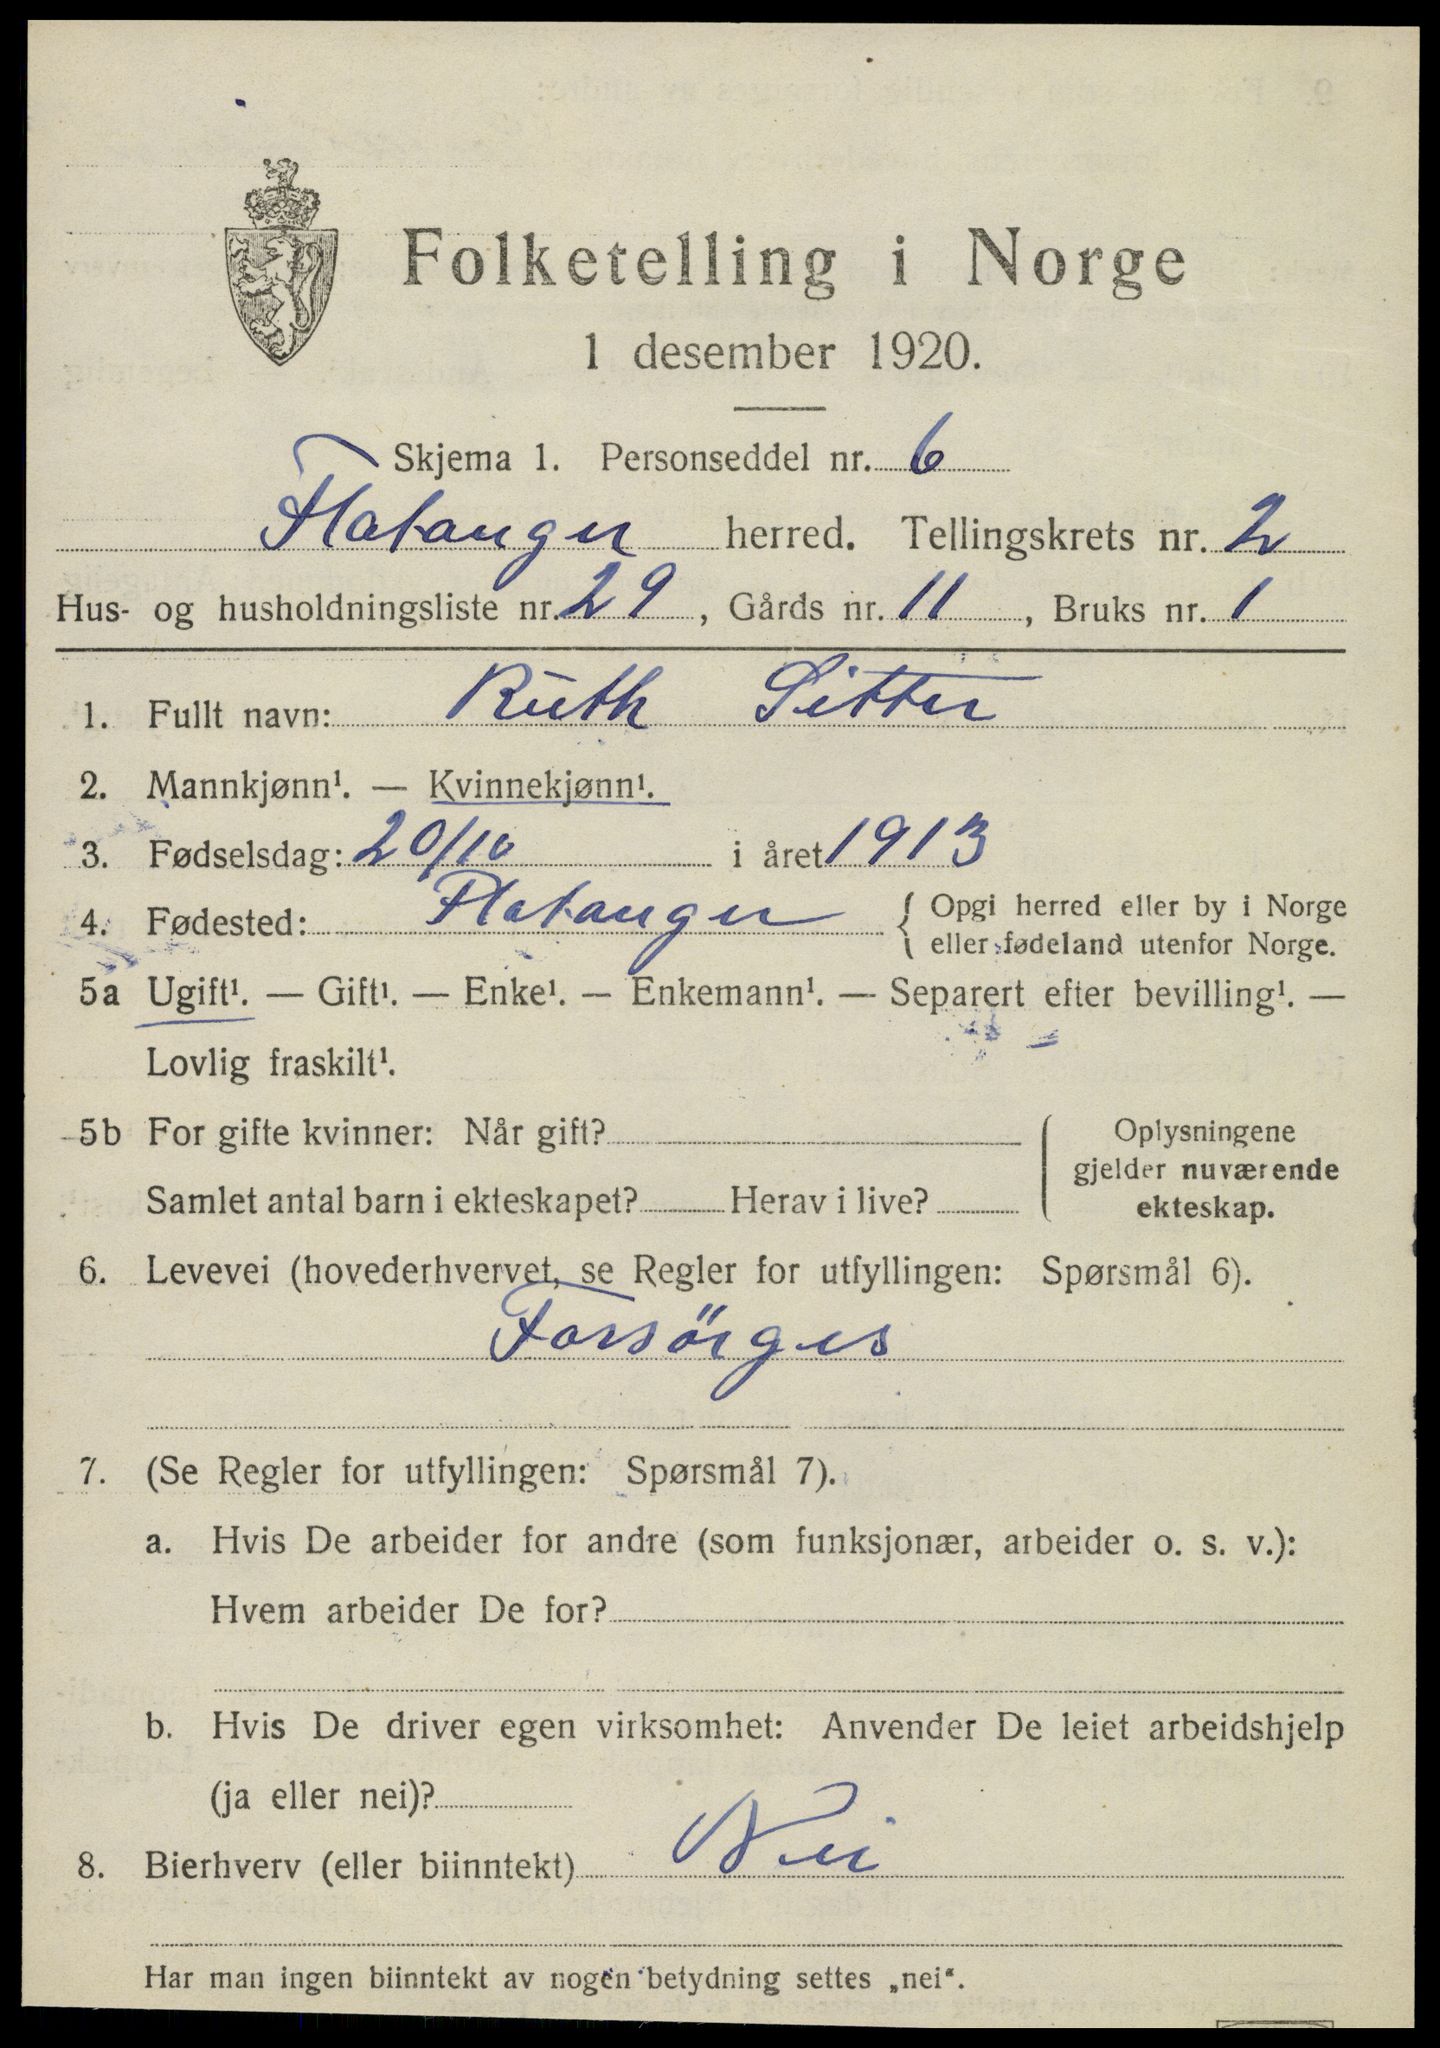 Folketelling i Norge
1 desember 1920.
Skjema 1. Personseddel nr. 6
Flatanger herred. Tellingskrets nr. 2
Hus- og husholdningsliste nr. 29, Gårds nr. 11, Bruks nr. 1
1. Fullt navn: Ruth Sitter
2. Mannkjønn¹. — Kvinnekjønn¹.
3. Fødselsdag: 20/10 i året 1913
4. Fødested: Flatanger { Opgi herred eller by i Norge
eller fødeland utenfor Norge.
5a Ugift¹. — Gift¹. — Enke¹. — Enkemann¹. — Separert efter bevilling¹. —
Lovlig fraskilt¹.
5b For gifte kvinner: Når gift?
Samlet antal barn i ekteskapet? Herav i live?
Oplysningene
gjelder nuværende
ekteskap.
6. Levevei (hovederhvervet, se Regler for utfyllingen: Spørsmål 6).
Forsörges
7. (Se Regler for utfyllingen: Spørsmål 7).
a. Hvis De arbeider for andre (som funksjonær, arbeider o. s. v.):
Hvem arbeider De for?
b. Hvis De driver egen virksomhet: Anvender De leiet arbeidshjelp
(ja eller nei)?
8. Bierhverv (eller biinntekt) Nei
Har man ingen biinntekt av nogen betydning settes „nei“.